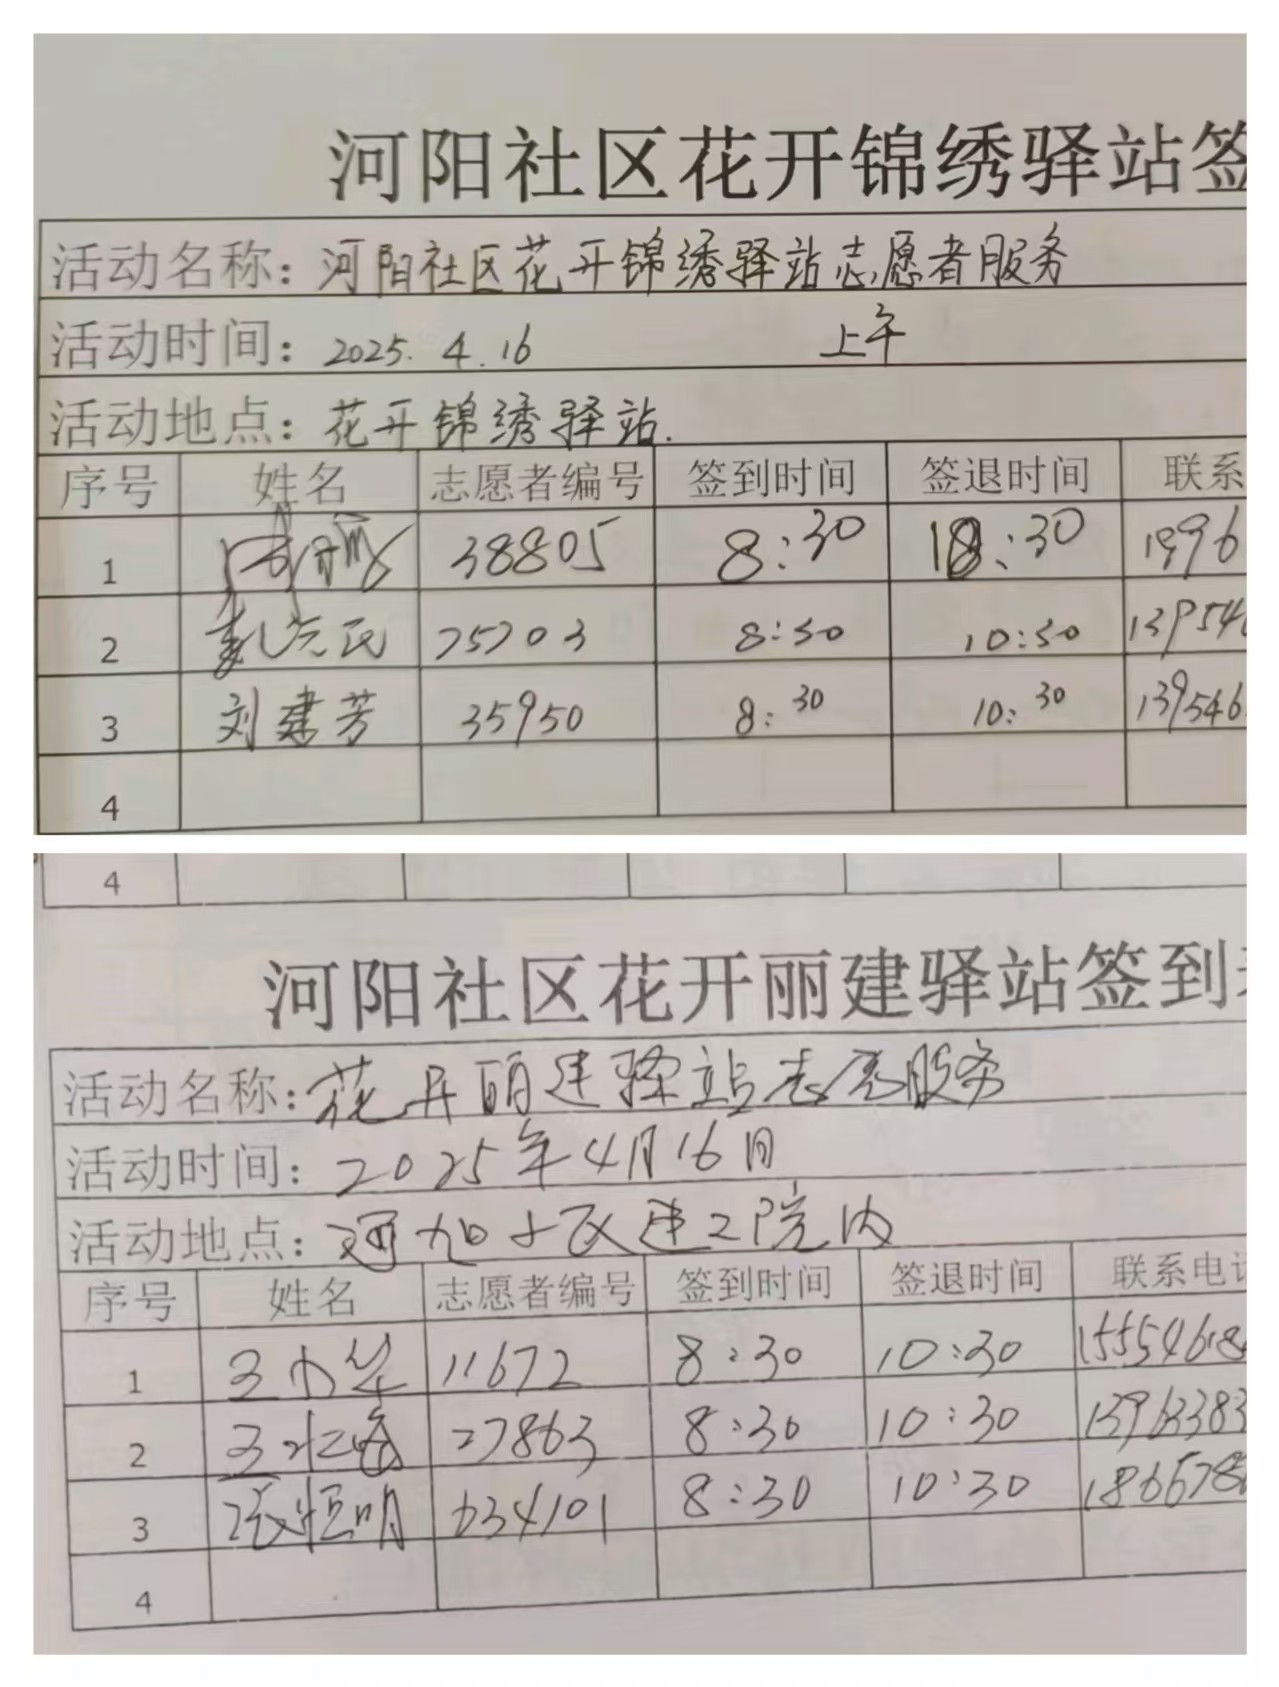 河阳社区花开锦绣驿站签
活动名称：河阳社区花开锦绣驿站志愿者服务
活动时间：2025.4.16 上午
活动地点：花开锦绣驿站.
序号 姓名 志愿者编号 签到时间 签退时间 联系
1 38805 8:30 :30 1996
2 元民 75703 8:30 10:30 139546
3 刘建芳 35950 8:30 10:30 139546
4
4
河阳社区花开丽建驿站签到
活动名称：花开丽建驿站志愿服务
活动时间：2025年4月16日
活动地点：河阳小区建工院内
序号 姓名 志愿者编号 签到时间 签退时间 联系电
1 王小华 11672 8:30 10:30 15554618
2 王 27863 8:30 10:30 13963383
3 张恒明 634101 8:30 10:30 1866578
4